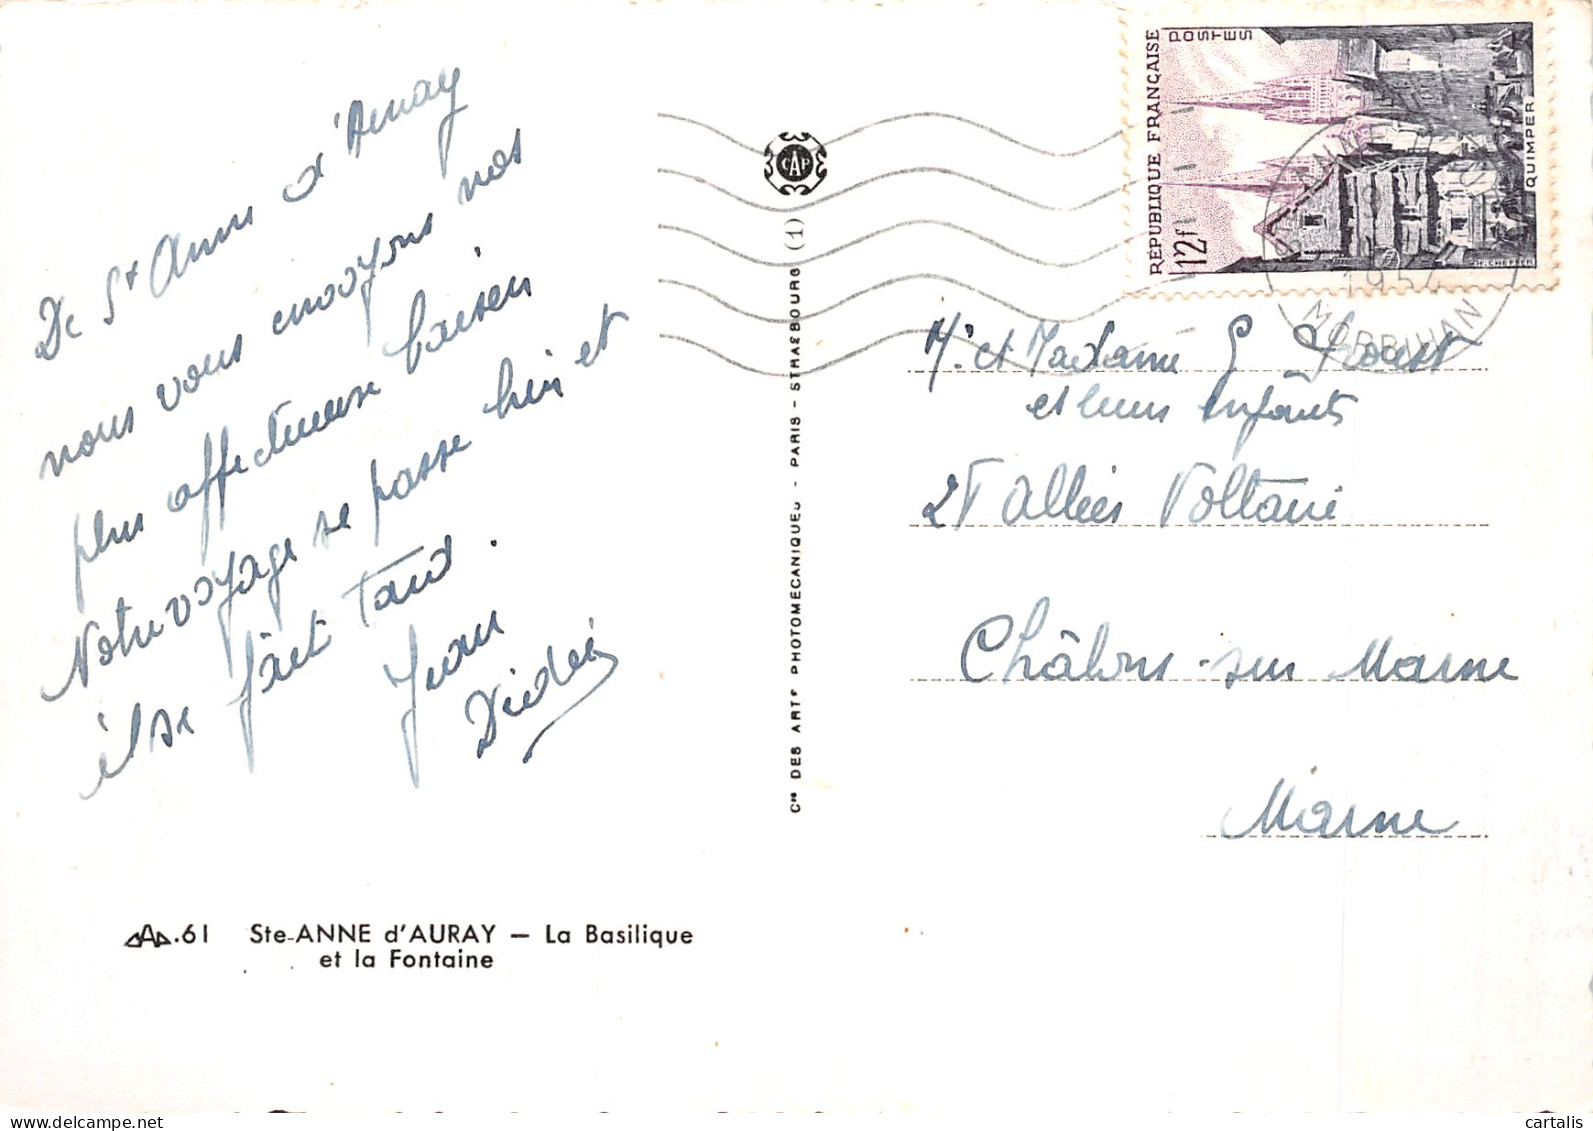 De St Anne d'Auray
nous vous envoyons nos
plus affectueux baisers
Notre voyage se passe bien et
il se fait tard.
Jean
Didier
.61 Ste-ANNE d'AURAY — La Basilique
et la Fontaine
Cie DES ARTS PHOTOMECANIQUES - PARIS - STRASBOURG (1)
CAP
RÉPUBLIQUE FRANÇAISE
POSTES
12f
QUIMPER
ANNE D
1954
MORBIHAN
Mr et Madame G
et leurs enfants
Allées Voltaire
Châlons-sur Marne
Marne
cartalis